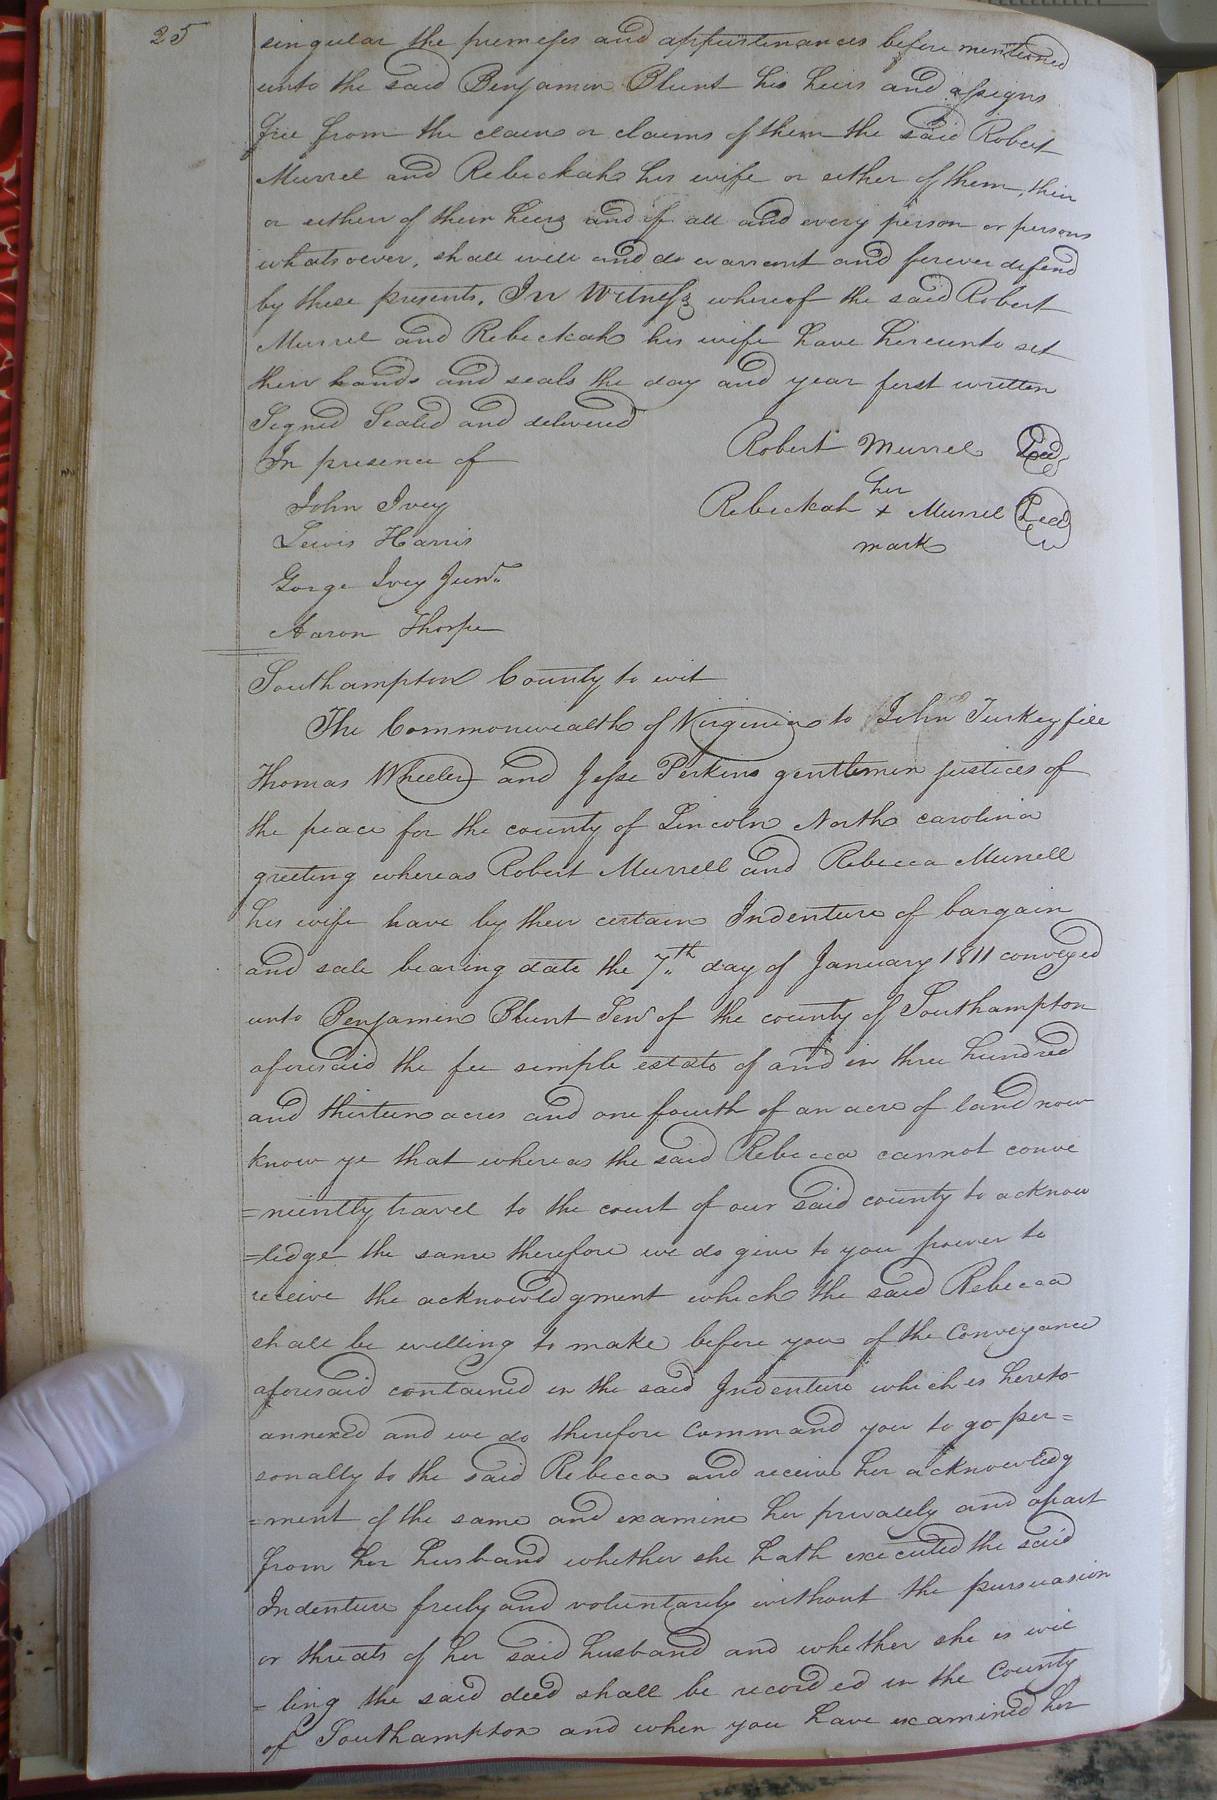 25
singular the premeses and appurtenances before mentioned
unto the said Benjamin Blunt his heirs and assigns
free from the claim or claims of them the said Robert
Murrel and Rebeckah his wife or either of them, their
or either of their heirs and of all and every person or persons
whatsoever, shall will and do warrant and forever defend
by these presents. In Witness whereof the said Robert
Murrel and Rebeckah his wife have hereunto set
their hands and seals the day and year first written
Signed Sealed and delivered
In presence of
Robert Murrel Seal
John Ivey
her
Rebeckah x Murrel Seal
mark
Lewis Harris
Gorge Ivey Junr
Aaron Thorpe
Southampton County to wit
The Commonwealth of Virginia to John Turkeyfill
Thomas Wheeler and Jesse Perkins gentlemin justices of
the peace for the county of Lincoln North carolina
greeting whereas Robert Murrell and Rebecca Murrell
his wife have by their certain Indenture of bargain
and sale bearing date the 7th day of January 1811 conveyed
unto Benjamin Blunt Senr of the county of Southampton
aforesaid the fee simple estate of and in three hundred
and thirteen acres and one fourth of an acre of land now
know ye that whereas the said Rebecca cannot conve
=niently travel to the court of our said county to acknow
=ledge the same therefore we do give to you power to
receive the acknowledgment which the said Rebecca
shall be willing to make before you of the Conveyance
aforesaid contained in the said Indenture which is hereto
annexed and we do therefore Command you to go per=
sonally to the said Rebecca and receive her acknowledg
=ment of the same and examine her privately and apart
from her husband whether she hath executed the said
Indenture freely and voluntarily without the persuasion
or threats of her said husband and whether she is wil
=ling the said deed shall be recorded in the County
of Southampton and when you have examined her